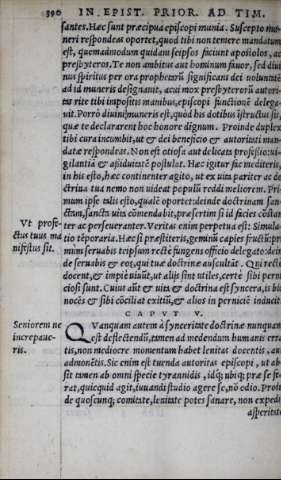 390 IN EPIST. PRIOR. AD TIM.
santes. Hæc sunt præcipua episcopi munia. Suscepto mu-
neri respondeas oportet, quod tibi non temere mandatum
est, quemadmodum quidam seipsos faciunt apostolos, ac
presbyteros. Te non ambitus aut hominum favor, sed divi
nus spiritus per ora prophetarū significans dei volūtatē
ad id muneris designavit, ac cui mox presbyterorū autori-
tas rite tibi impositis manibus, episcopi functionē delega-
vit. Porrò divini muneris est, quòd his dotibus istructus sis,
quæ te declararent hoc honore dignum. Proinde duplex
tibi cura incumbit, ut & dei beneficio & autoritati man-
datæ respondeas. Non est otiosa aut delicata professio: vi-
gilantiā & assiduitatē postulat. Hæc igitur fac mediteris,
in his esto, hæc continenter agito, ut ex vita pariter ac do
ctrina tua nemo non videat populū reddi meliorem. Pri-
mum ipse talis esto, qualē oportet: deinde doctrinam san-
ctam, sanctā vitā cōmendabit, præsertim si id facies cōstan
Ut profe-
ctus tuus ma
nifestus sit.
ter ac perseveranter. Veritas enim perpetua est: Simula-
tio tēporaria. Hæc si præstiteris, geminū capies fructū: pri
mùm servabis teipsum rectè fungens officio delegato: dein
de servabis & eos, qui tuæ doctrinæ auscultāt. Qui rectè
docent, & impiè vivūt, ut alijs sint utiles, certè sibi perni
ciosi sunt. Cuius aūt & vita & doctrina est syncera, is bi
nocēs & sibi cōciliat exitiū, & alios in perniciē inducit.
CAPUT V.
Seniorem ne
increpave-
ris.
QVanquam autem à synceritate doctrinæ nunquam
est deflectendū, tamen ad medendum humanis erra
tis, non mediocre momentum habet lenitas docentis, aut
admonētis. Sic enim est tuenda autoritas episcopi, ut ab-
sit tamen ab omni specie tyrannidis, idq; ubiq; præ se fe-
rat, quicquid agit, iuvandi studio agere se, nō odio. Proin
de quoscunq; comitate, lenitate potes sanare, non expedit
asperitate